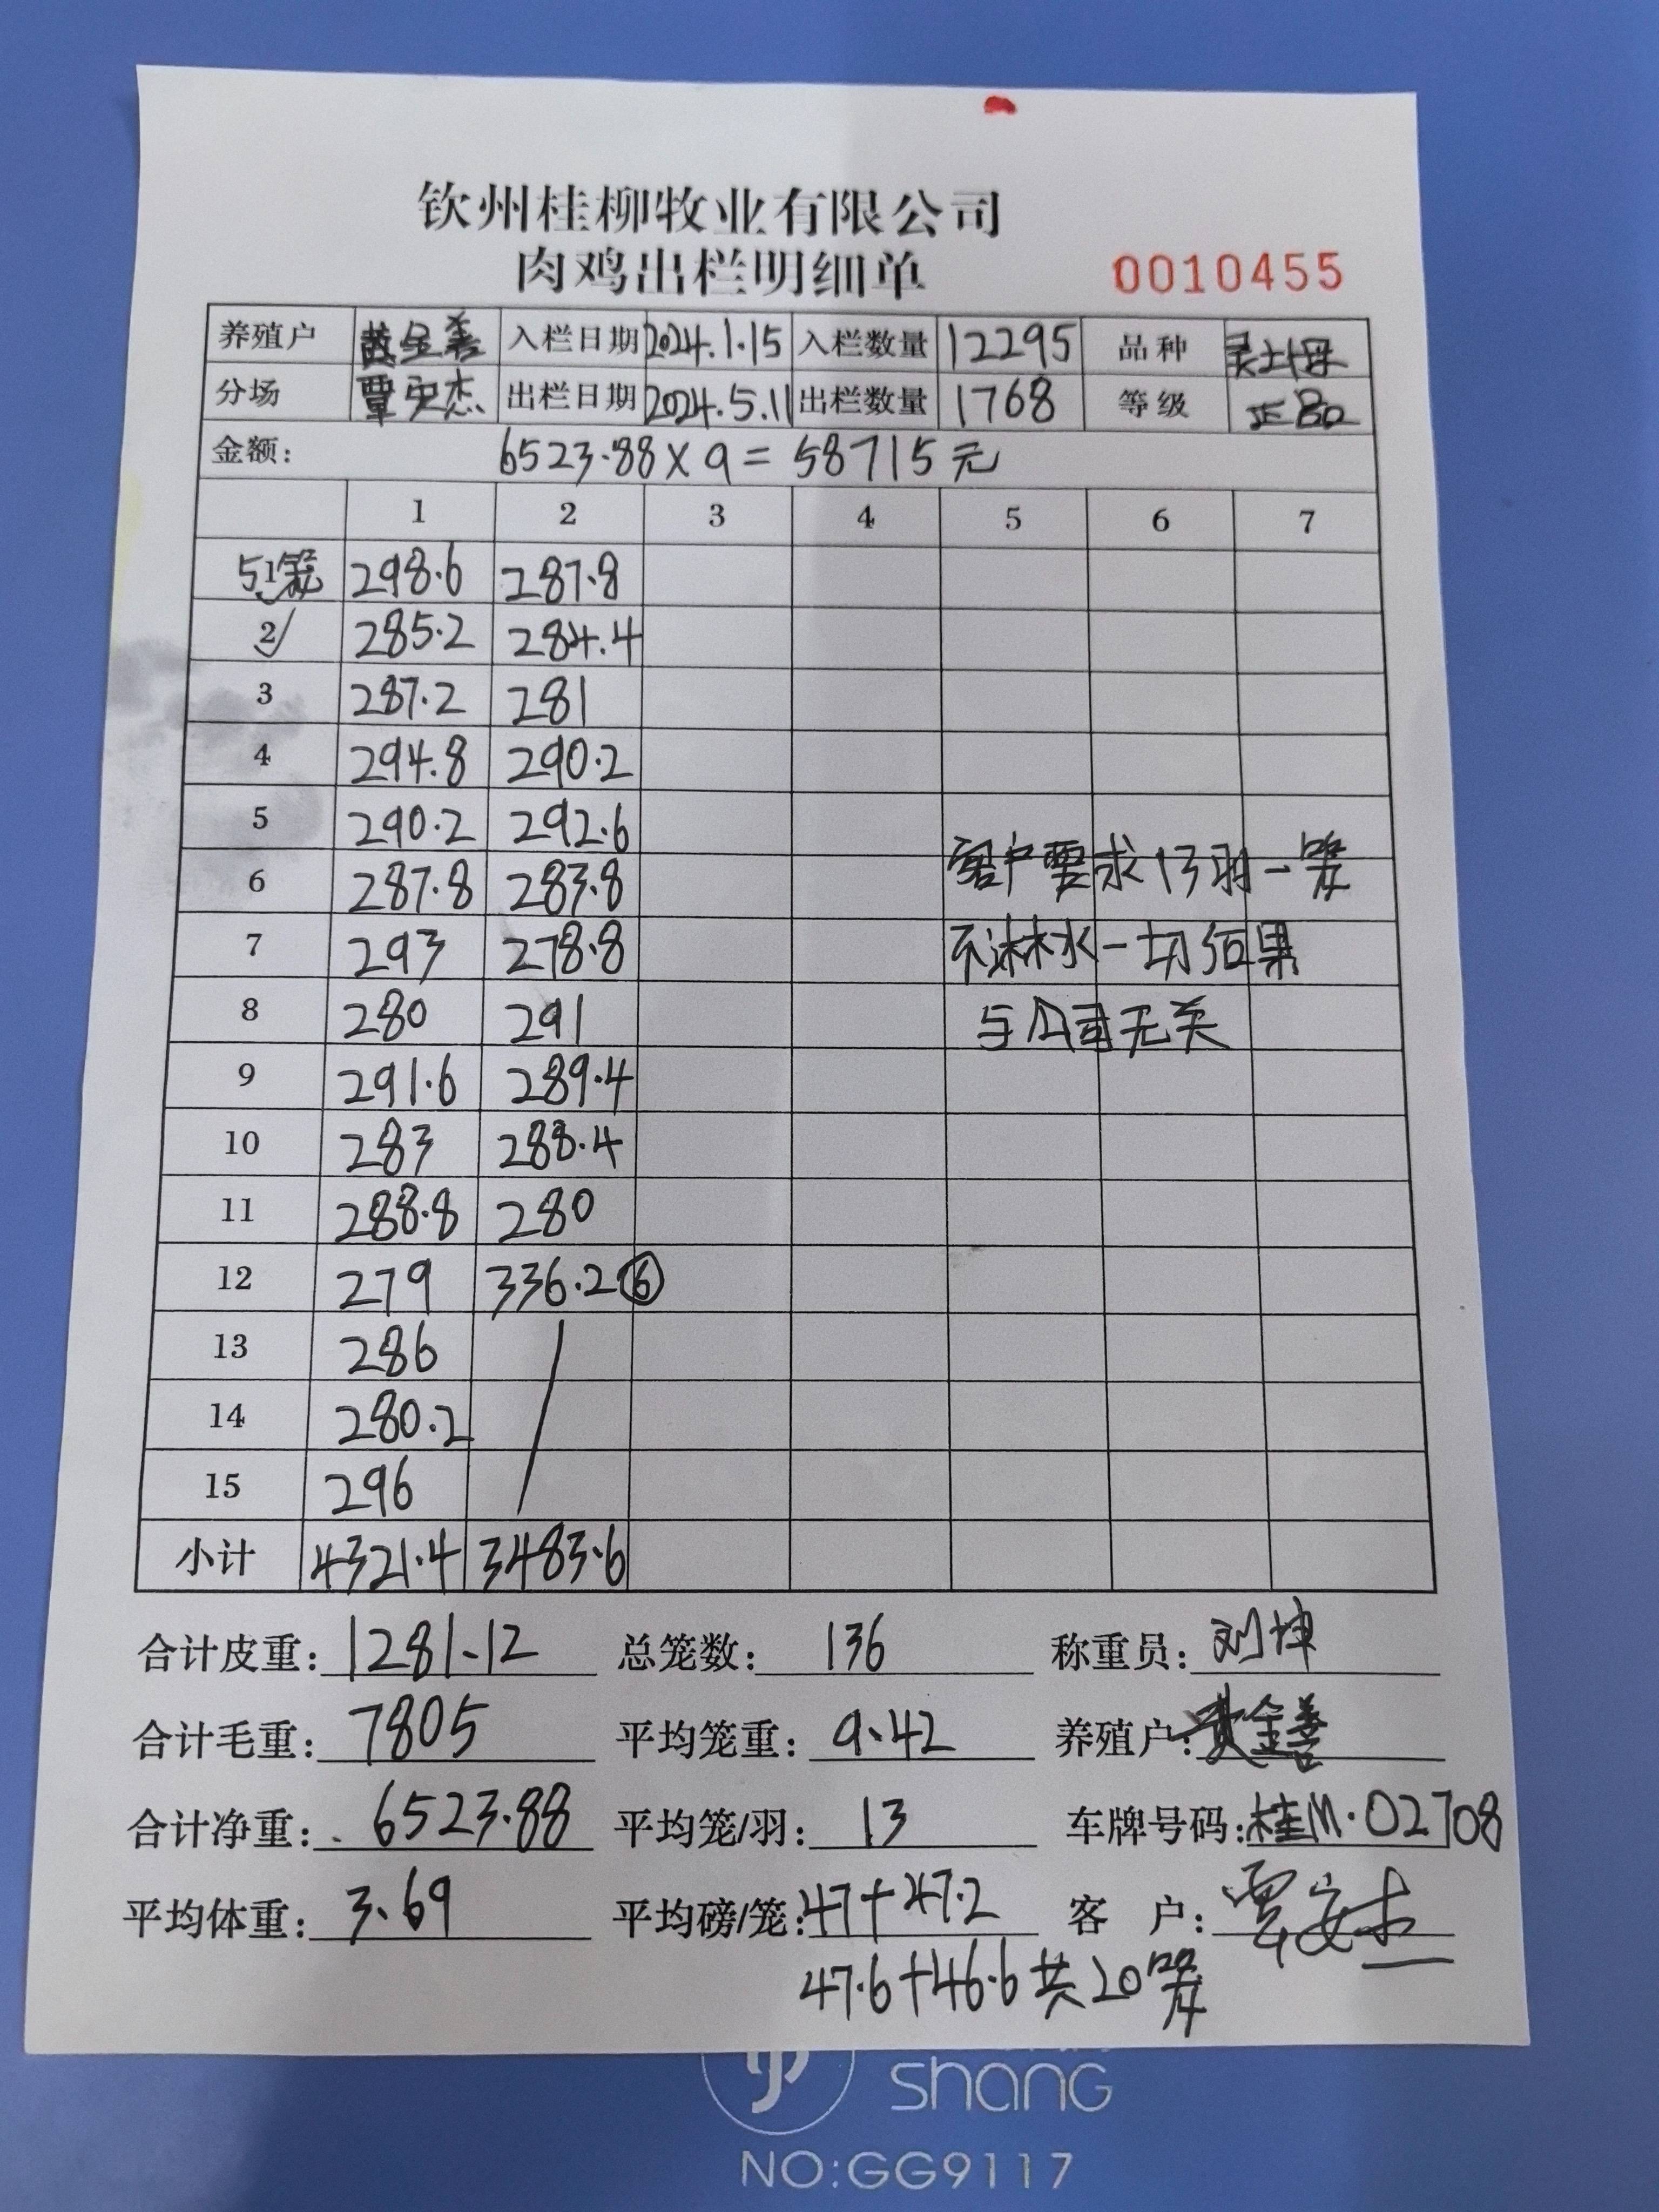 钦州桂柳牧业有限公司
肉鸡出栏明细单 0010455
养殖户 黄金善 入栏日期 2024.1.15 入栏数量 12295 品种 灵土母
分场 覃安杰 出栏日期 2024.5.11 出栏数量 1768 等级 正品
金额: 6523.88×9=58715元
1 2 3 4 5 6 7
5 1 笼 298.6 287.8
2 285.2 284.4
3 287.2 281
4 294.8 290.2
5 290.2 292.6
6 287.8 283.8 客户要求13羽一笼
7 293 278.8 不淋水一切后果
8 280 291 与公司无关
9 291.6 289.4
10 283 288.4
11 288.8 280
12 279 336.2 ⑥
13 286
14 280.2
15 296
小计 4321.4 3483.6
合计皮重: 1281.12 总笼数: 136 称重员: 刘坤
合计毛重: 7805 平均笼重: 9.42 养殖户: 黄金善
合计净重: 6523.88 平均笼/羽: 13 车牌号码: 桂M·02708
平均体重: 3.69 平均磅/笼: 47+47.2 客户: 覃安杰
47.6+46.6共20笼
shang
NO:GG9117